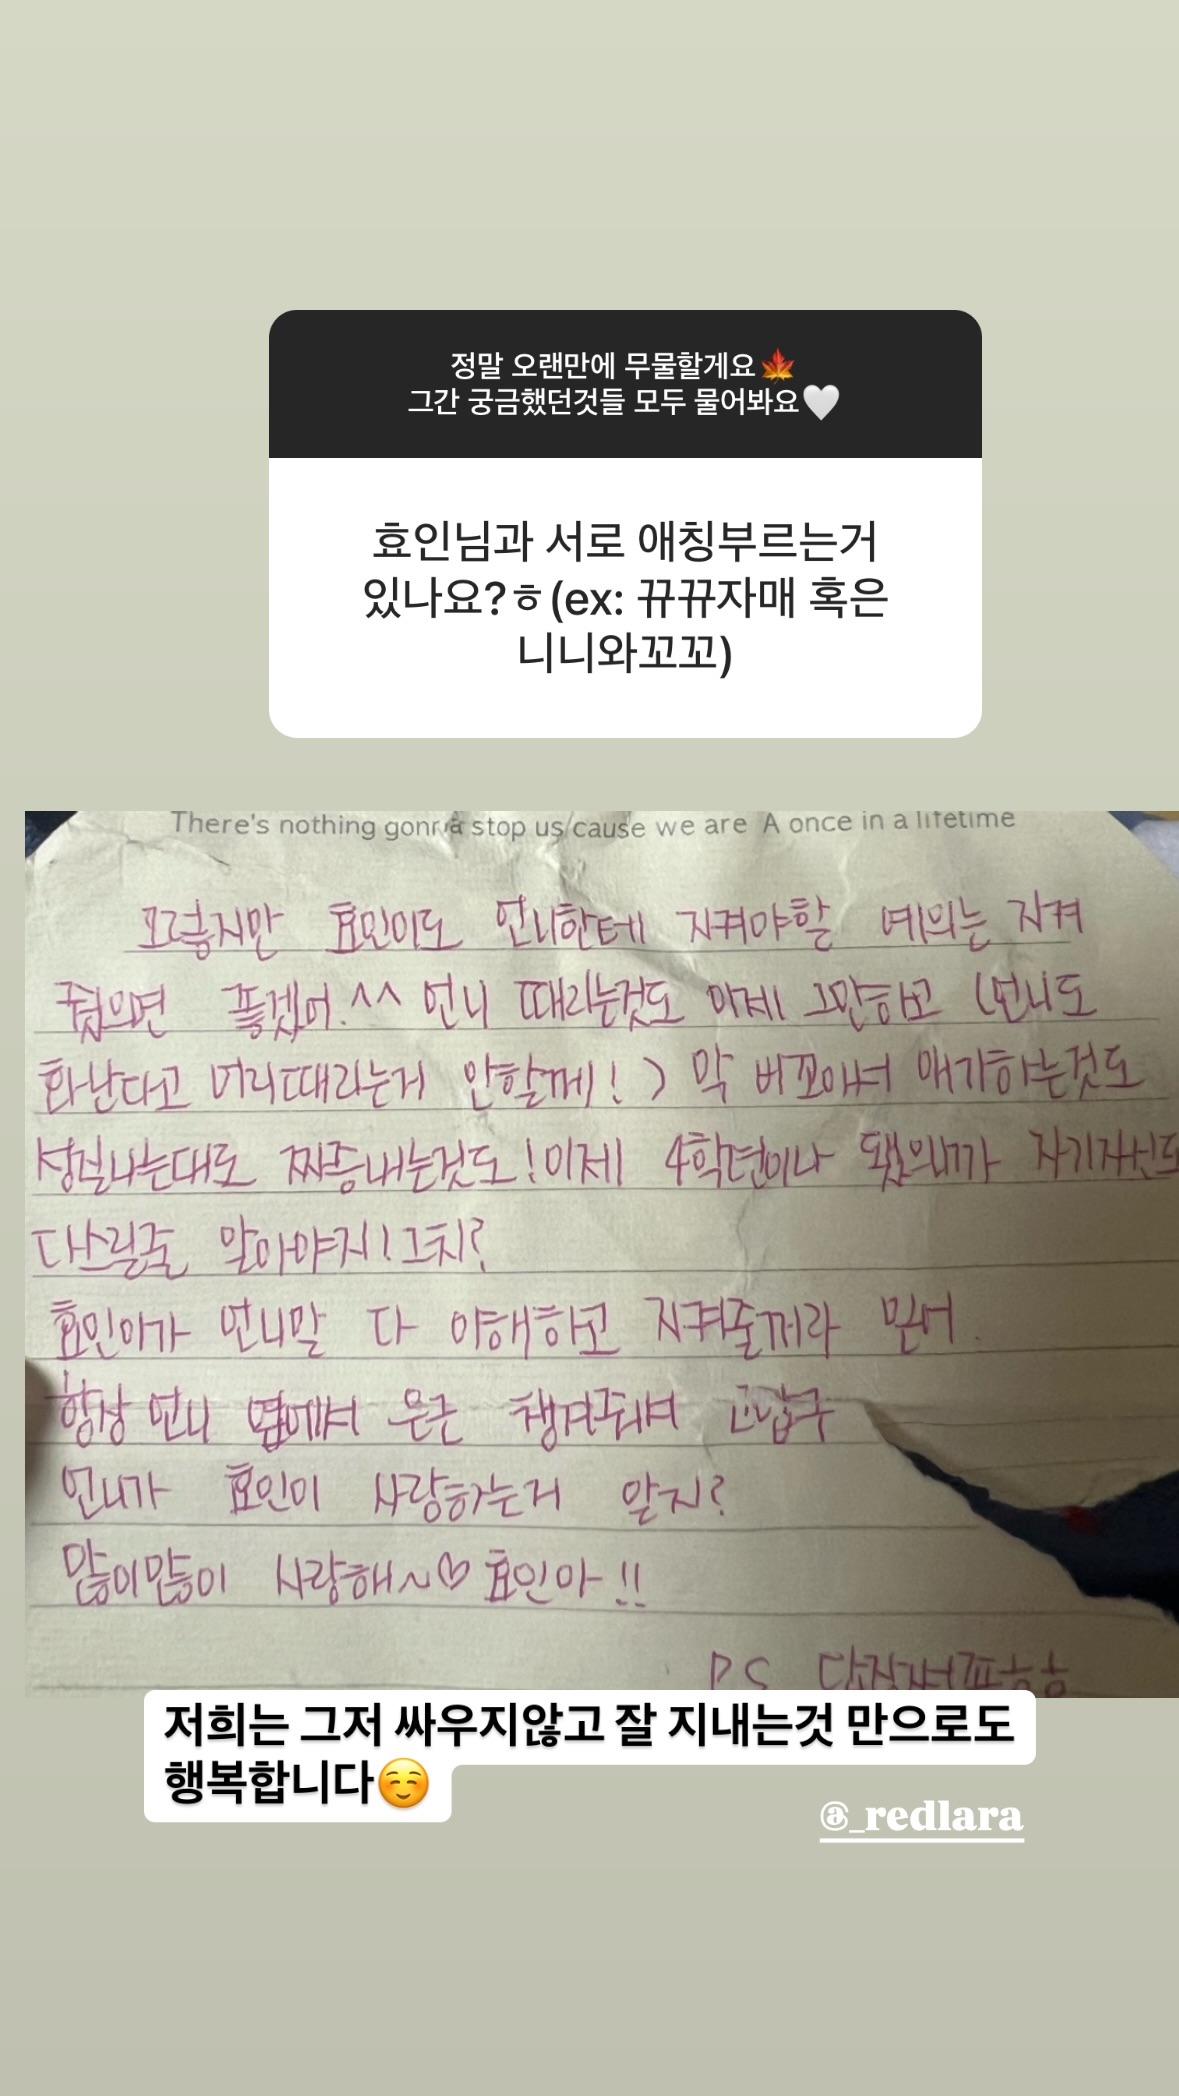 정말 오랜만에 무물할게요🍁
그간 궁금했던것들 모두 물어봐요🤍
효인님과 서로 애칭부르는거
있나요?ㅎ(ex: 뀨뀨자매 혹은
니니와꼬꼬)
There's nothing gonna stop us cause we are A once in a lifetime
그렇지만 효인이도 언니한테 지켜야할 예의는 지켜
줬으면 좋겠어.^^ 언니 때리는것도 이제 그만하고 (언니도
화난다고 머리때리는거 안할께!) 막 비꼬아서 얘기하는것도
성질나는대로 짜증내는것도! 이제 4학년이나 됐으니까 자기자신도
다스릴줄 알아야지! 그치?
효인이가 언니말 다 이해하고 지켜줄꺼라 믿어.
항상 언니 옆에서 은근 챙겨줘서 고맙구
언니가 효인이 사랑하는거 알지?
많이많이 사랑해~♡ 효인아!!
PS 답장써줘ㅎㅎ
저희는 그저 싸우지않고 잘 지내는것 만으로도
행복합니다☺️
@_redlara